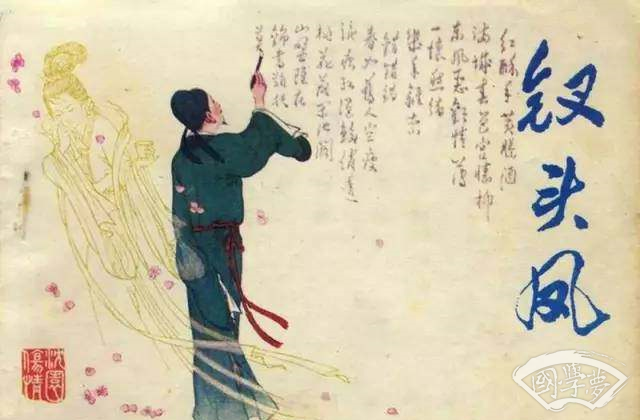 钗头凤
红酥手黄縢酒
满城春色宫墙柳
东风恶欢情薄
一怀愁绪
几年离索
错错错
春如旧人空瘦
泪痕红浥鲛绡透
桃花落闲池阁
山盟虽在
锦书难托
莫
沈園
傷情
國學夢